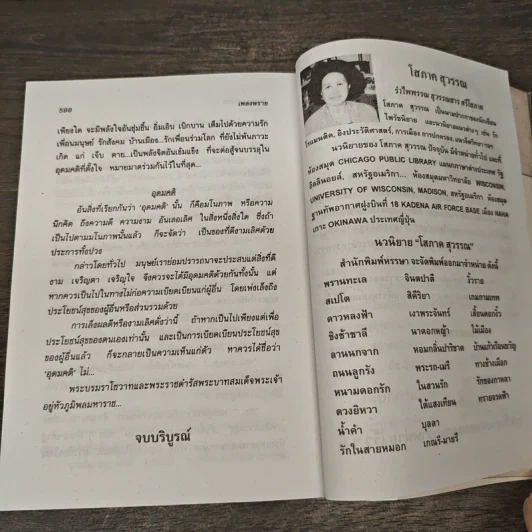 ๖๑๑
เพลงพราย
เพียงใด จะมีพลังใจอันชุ่มชื่น อิ่มเอิบ เบิกบาน เต็มไปด้วยความรัก
เพื่อนมนุษย์ รักสังคม บ้านเมือง...รักเพื่อนร่วมโลก ที่ยังไม่พ้นภาวะ
เกิด แก่ เจ็บ ตาย...เป็นพลังจิตอันเข้มแข็ง ที่จะต่อสู้จนบรรลุใน
อุดมคติที่ตั้งใจ หมายมาดร่วมกันไว้ในที่สุด...
อุดมคติ
อันสิ่งที่เรียกกันว่า 'อุดมคติ' นั้น ก็คือมโนภาพ หรือความ
นึกคิด ถึงความดี ความงาม อันเลอเลิศ ในสิ่งหนึ่งสิ่งใด ซึ่งถ้า
เป็นไปตามมโนภาพนั้นแล้ว ก็จะจัดว่า เป็นของที่ดีงามเลิศด้วย
ประการทั้งปวง
กล่าวโดยทั่วไป มนุษย์เราย่อมปรารถนาจะประสบแต่สิ่งที่ดี
งาม เจริญตา เจริญใจ จึงควรจะได้มีอุดมคติด้วยกันทั้งนั้น แต่
หากควรเป็นไปในทางไม่ก่อความเบียดเบียนแก่ผู้อื่น โดยเพ่งเล็งถึง
ประโยชน์สุขของผู้อื่นหรือส่วนรวมด้วย
การเล็งผลดีหรืองามเลิศดั่งว่านี้ ถ้าหากเป็นไปเพียงแต่เพื่อ
ประโยชน์สุขของตนเองเท่านั้น และเป็นการเบียดเบียนประโยชน์สุข
ของผู้อื่นแล้ว ก็จะกลายเป็นความเห็นแก่ตัว หาควรได้ชื่อว่า
'อุดมคติ' ไม่...
พระบรมราโชวาทและพระราชดำรัสพระบาทสมเด็จพระเจ้า
อยู่หัวภูมิพลมหาราช...
จบบริบูรณ์
โสภาค สุวรรณ
รำไพพรรณ สุวรรณสาร ศรีโสภาค
โสภาค สุวรรณ เป็นนามปากกาของนักเขียน
นวนิยายของ โสภาค สุวรรณ ปัจจุบัน มีจำหน่ายทั่วไป และที่
ห้องสมุด CHICAGO PUBLIC LIBRARY แผนกภาษาต่างประเทศ รัฐ
อิลลินอยส์, สหรัฐอเมริกา... ห้องสมุดมหาวิทยาลัย WISCONSIN,
UNIVERSITY OF WISCONSIN, MADISON, สหรัฐอเมริกา ห้องสมุด
ฐานทัพอากาศฝูงบินที่ 18 KADENA AIR FORCE BASE เมือง NAHA
เกาะ OKINAWA ประเทศญี่ปุ่น
นวนิยาย "โสภาค สุวรรณ"
สำนักพิมพ์พรรษา จะจัดพิมพ์ออกมาจำหน่าย ดังนี้
พรานทะเล จินตปาตี งิ้วราย
สเปโต สิคีริยา เกมกามเทพ
ดาวหลงฟ้า เงาพระจันทร์ เสื้อนดอกงิ้ว
ชิงช้าชาลี นาตอกหญ้า ไม้เมือง
ลานนกจาก หอมกลิ่นปาริชาต
ถนนลูกรัง พระรถ-เมรี ทางช้างเผือก
หนามดอกรัก ในสวนรัก รักของกาหลา
ดวงยิหวา ใต้แสงเทียน ทรายจรดฟ้า
น้ำคำ บุลลา
รักในสายหมอก เกณรี-มายรี